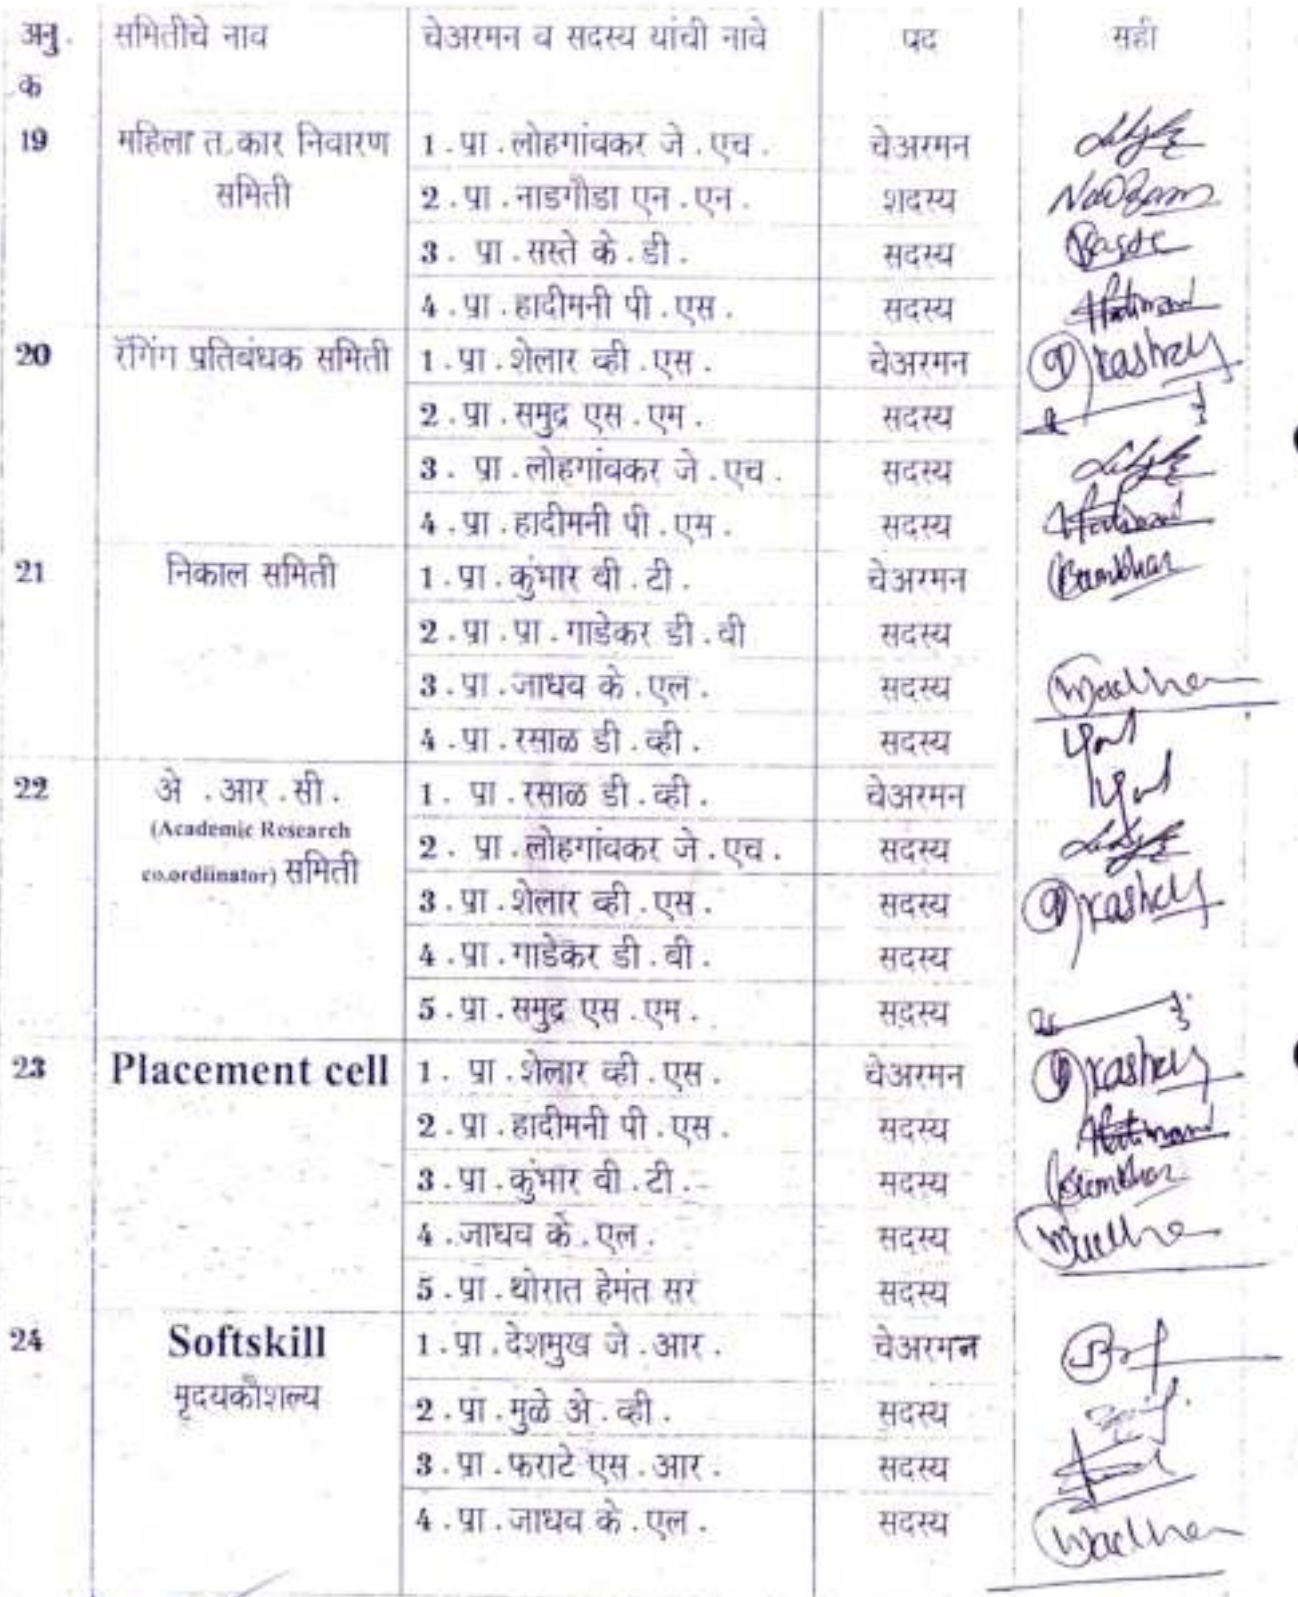 अनु. समितीचे नाव चेअरमन व सदस्य यांची नावे पद सही
क
19 महिला त.कार निवारण 1.प्रा.लोहगांवकर जे.एच. चेअरमन
समिती 2.प्रा.नाडगौडा एन.एन. शदस्य
3. प्रा.सस्ते के.डी. सदस्य
4.प्रा.हादीमनी पी.एस. सदस्य
20 रॅगिंग प्रतिबंधक समिती 1.प्रा.शेलार व्ही.एस. चेअरमन
2.प्रा.समुद्र एस.एम. सदस्य
3. प्रा.लोहगांवकर जे.एच. सदस्य
4.प्रा.हादीमनी पी.एस. सदस्य
21 निकाल समिती 1.प्रा.कुंभार बी.टी. चेअरमन
2.प्रा.प्रा.गाडेकर डी.बी सदस्य
3.प्रा.जाधव के.एल. सदस्य
4.प्रा.रसाळ डी.व्ही. सदस्य
22 अे .आर.सी. 1. प्रा.रसाळ डी.व्ही. चेअरमन
(Academic Research 2. प्रा.लोहगांवकर जे.एच. सदस्य
co.ordiinator) समिती 3.प्रा.शेलार व्ही.एस. सदस्य
4.प्रा.गाडेकर डी.बी. सदस्य
5.प्रा.समुद्र एस.एम. सदस्य
23 Placement cell 1. प्रा.शेलार व्ही.एस. चेअरमन
2.प्रा.हादीमनी पी.एस. सदस्य
3.प्रा.कुंभार बी.टी. सदस्य
4.जाधव के.एल. सदस्य
5.प्रा.थोरात हेमंत सर सदस्य
24 Softskill 1.प्रा.देशमुख जे.आर. चेअरमन
मृदयकौशल्य 2.प्रा.मुळे अे.व्ही. सदस्य
3.प्रा.फराटे एस.आर. सदस्य
4.प्रा.जाधव के.एल. सदस्य